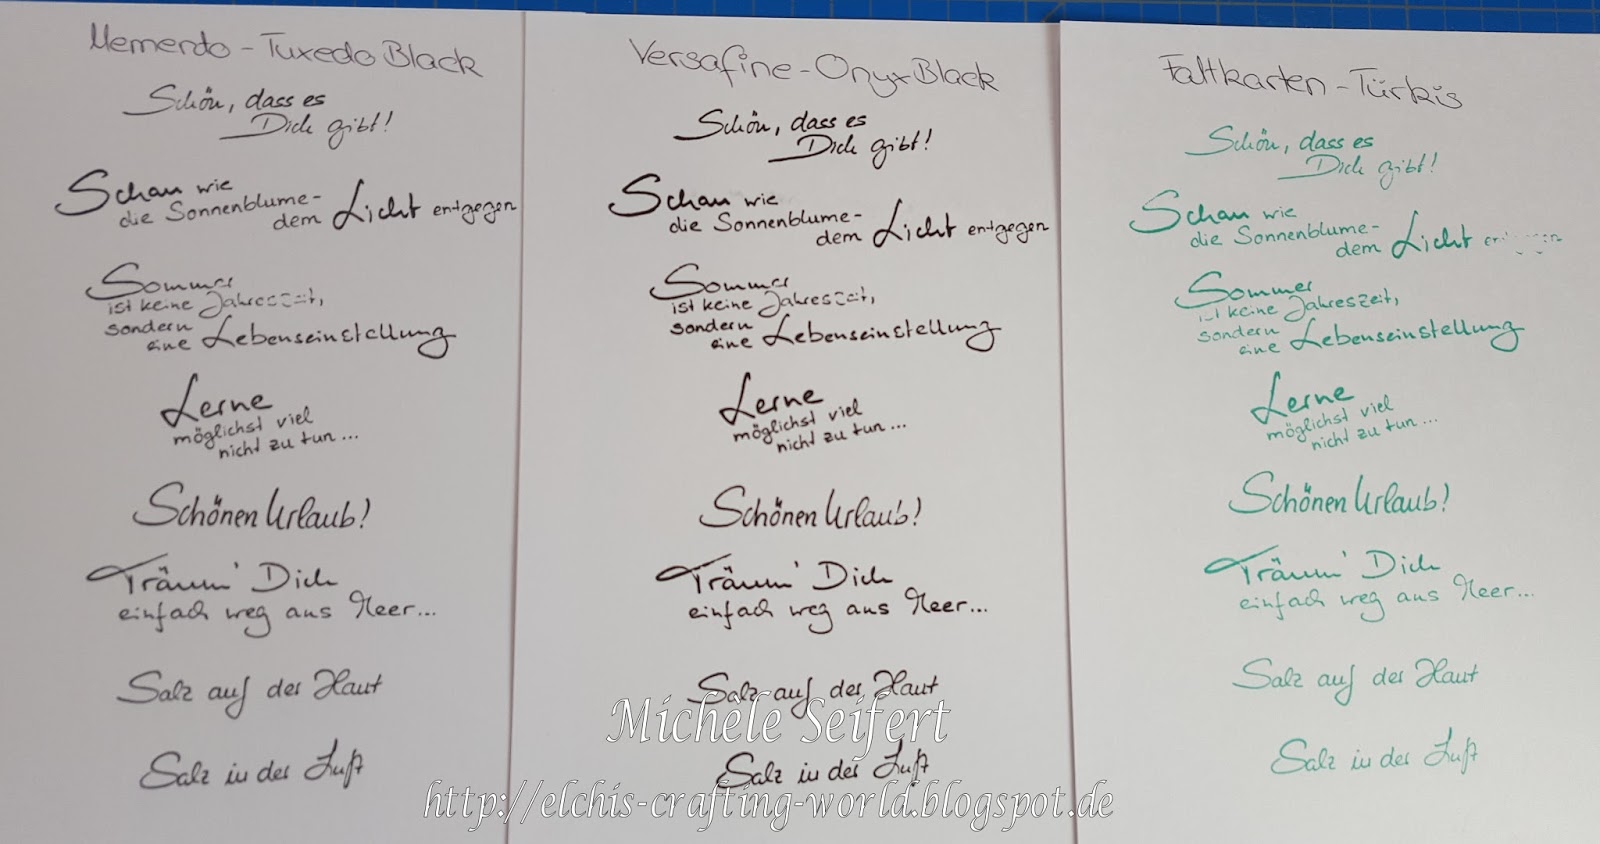 Memento - Tuxedo Black
Schön, dass es
Dich gibt!
Schau wie
die Sonnenblume-
dem Licht entgegen
Sommer
ist keine Jahreszeit,
sondern
eine Lebenseinstellung
Lerne
möglichst viel
nicht zu tun...
Schönen Urlaub!
Träum' Dich
einfach weg ans Meer...
Salz auf der Haut
Salz in der Luft
Versafine - Onyx Black
Schön, dass es
Dich gibt!
Schau wie
die Sonnenblume-
dem Licht entgegen
Sommer
ist keine Jahreszeit,
sondern
eine Lebenseinstellung
Lerne
möglichst viel
nicht zu tun...
Schönen Urlaub!
Träum' Dich
einfach weg ans Meer...
Salz auf der Haut
Salz in der Luft
Faltkarten - Türkis
Schön, dass es
Dich gibt!
Schau wie
die Sonnenblume-
dem Licht
Sommer
ist keine Jahreszeit,
sondern
eine Lebenseinstellung
Lerne
möglichst viel
nicht zu tun...
Schönen Urlaub!
Träum' Dich
einfach weg ans Meer...
Salz auf der Haut
Salz in der Luft
Michèle Seifert
http://elchis-crafting-world.blogspot.de